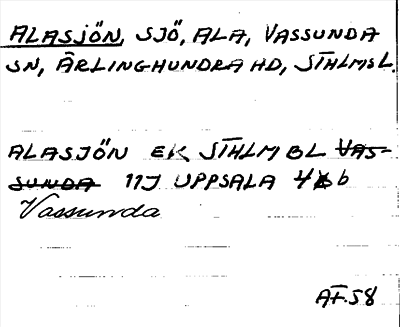 ALASJÖN, SJÖ, ALA, VASSUNDA
SN, ÄRLINGHUNDRA HD, STHLMS L.
ALASJÖN EK STHLM BL VAS-
SUNDA 11J UPPSALA 4 b
Vassunda
AF.58